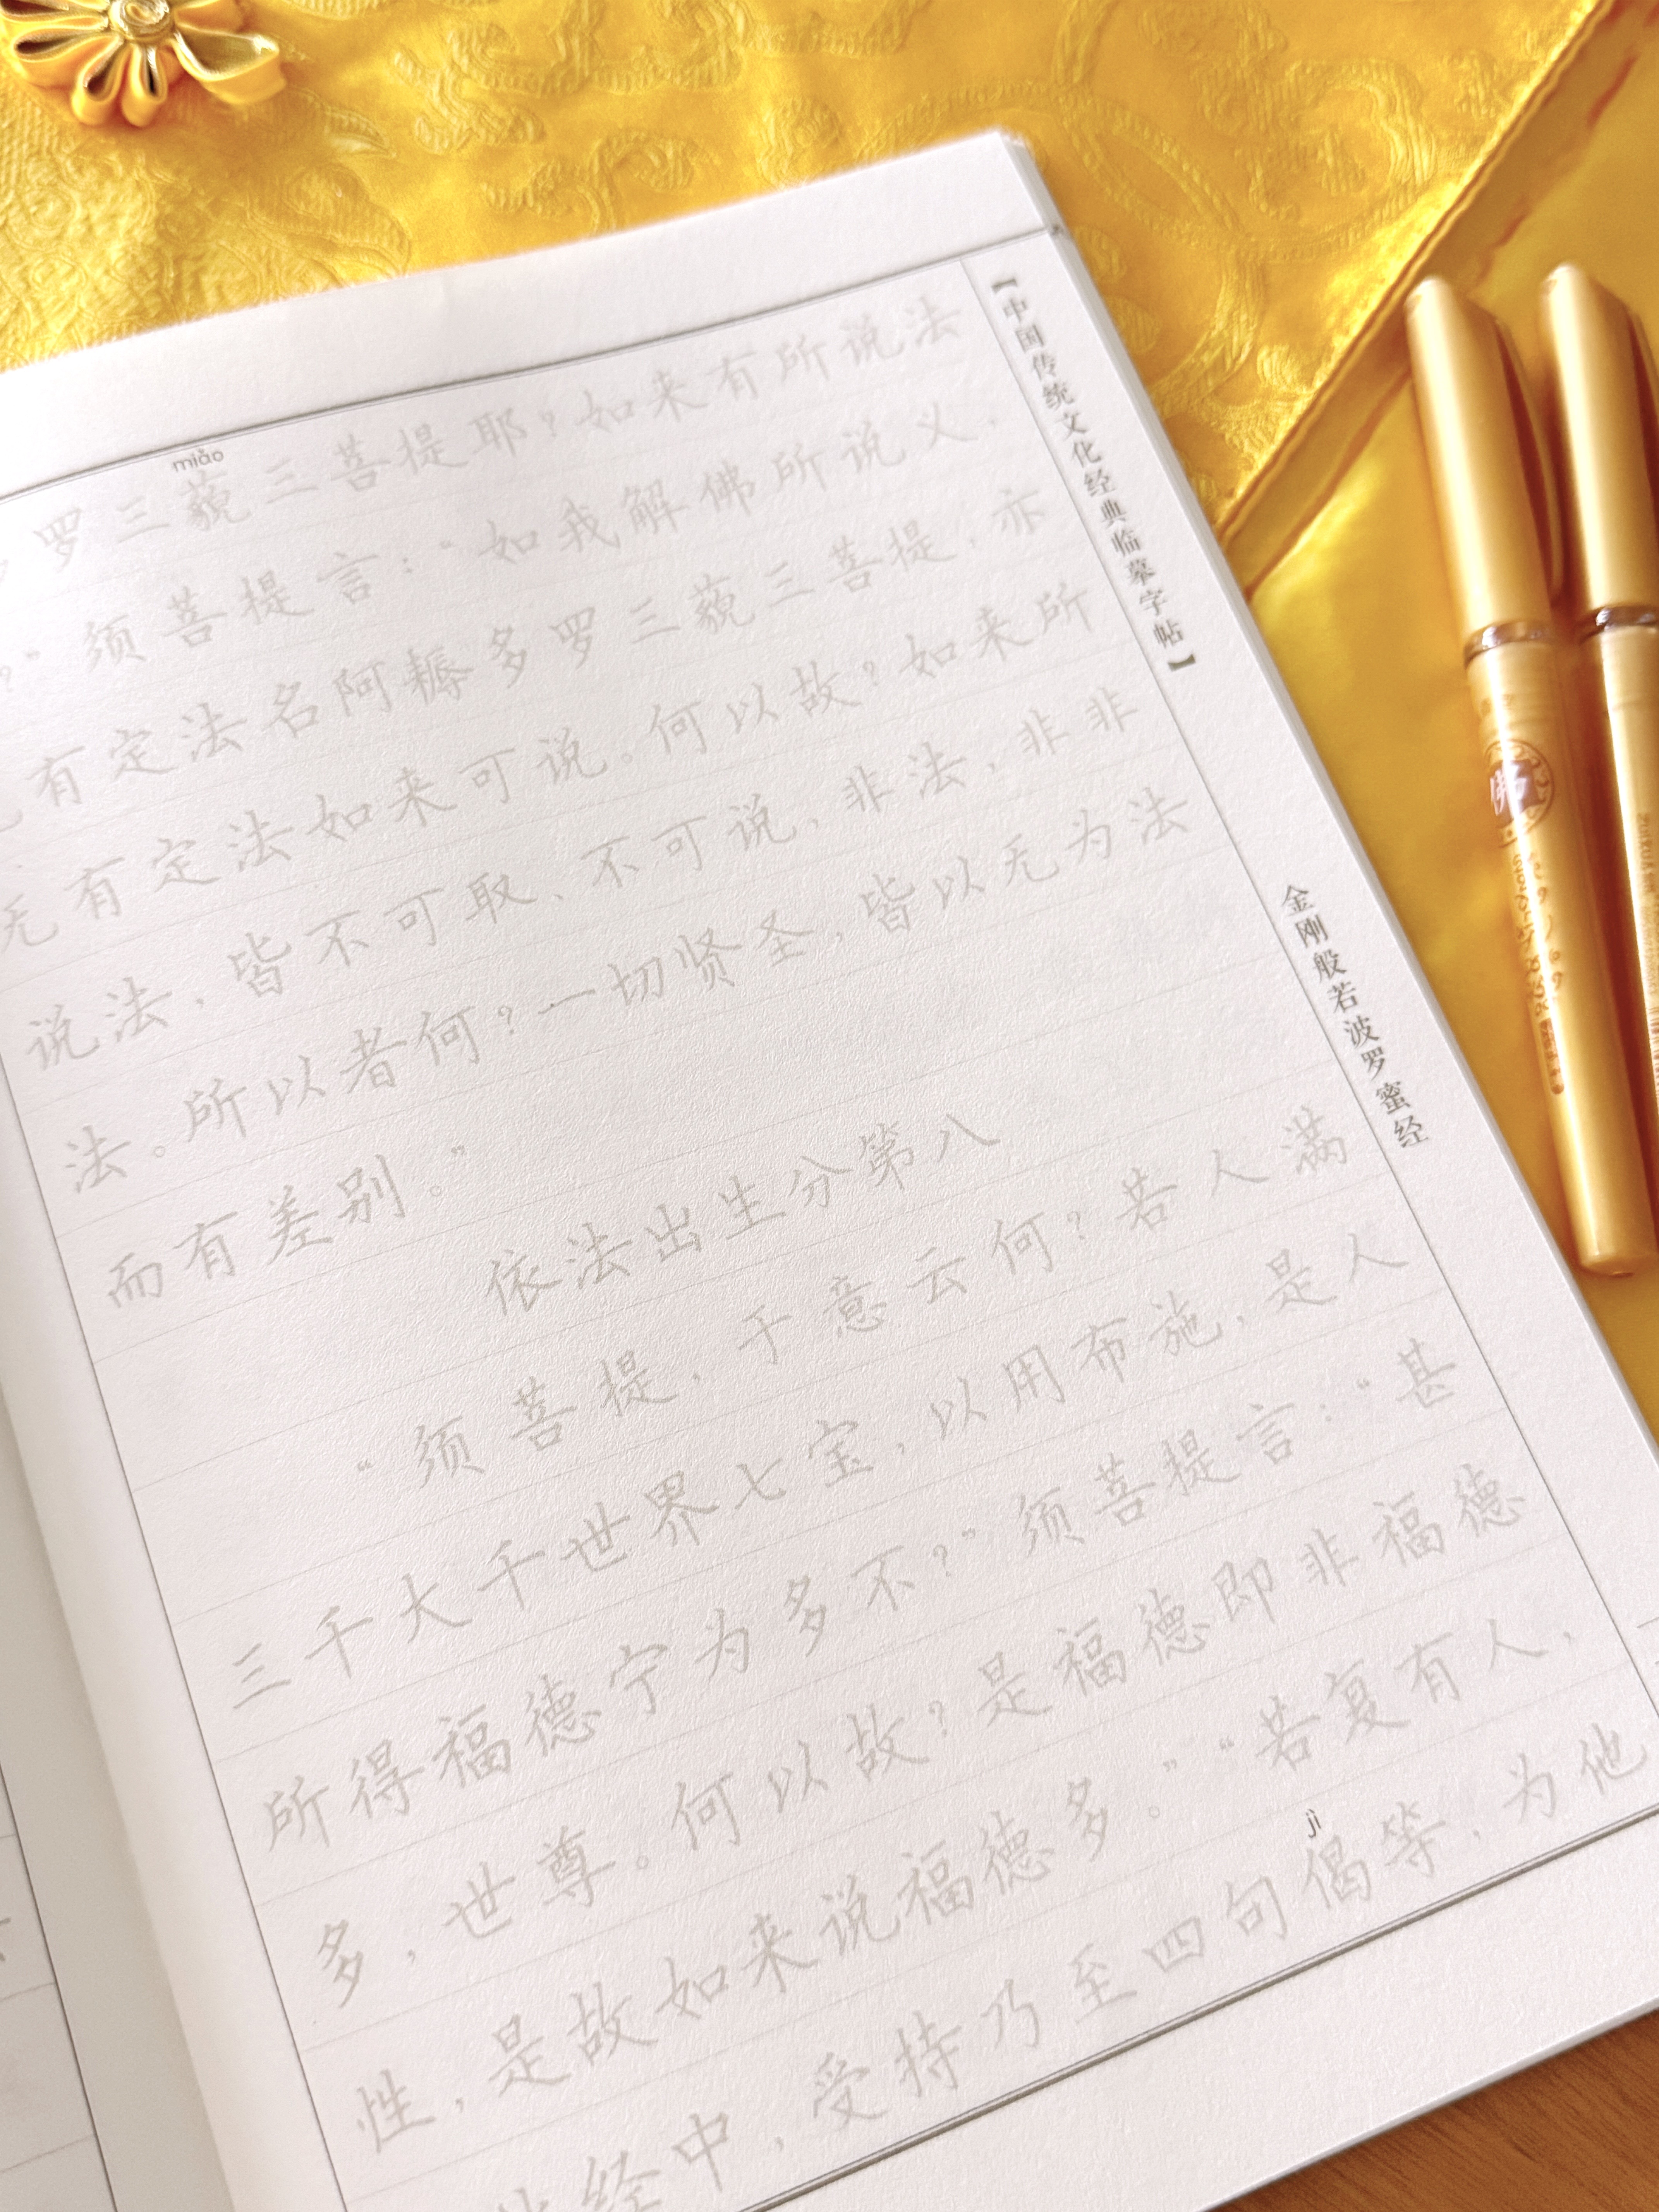 miǎo
罗三藐三菩提耶？如来有所说法
？”须菩提言：“如我解佛所说义，
有定法名阿耨多罗三藐三菩提，亦
无有定法如来可说。何以故？如来所
说法，皆不可取、不可说，非法，非非
法。所以者何？一切贤圣，皆以无为法
而有差别。”
依法出生分第八
“须菩提，于意云何？若人满
三千大千世界七宝，以用布施，是人
所得福德宁为多不？”须菩提言：“甚
多，世尊。何以故？是福德即非福德
性，是故如来说福德多。”“若复有人，
jì
经中，受持乃至四句偈等，为他
【中国传统文化经典临摹字帖】
金刚般若波罗蜜经